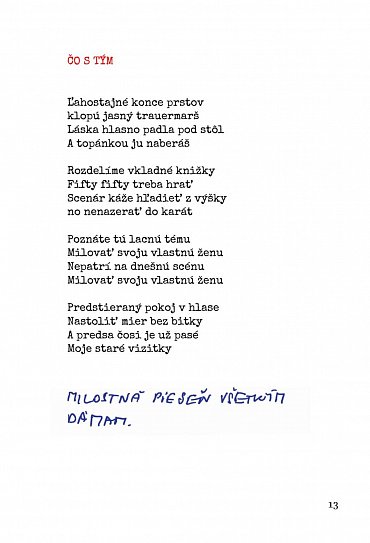 ČO S TÝM
Ľahostajné konce prstov
klopú jasný trauermarš
Láska hlasno padla pod stôl
A topánkou ju naberáš
Rozdelíme vkladné knižky
Fifty fifty treba hrať
Scenár káže hľadieť z výšky
no nenazerať do karát
Poznáte tú lacnú tému
Milovať svoju vlastnú ženu
Nepatrí na dnešnú scénu
Milovať svoju vlastnú ženu
Predstieraný pokoj v hlase
Nastoliť mier bez bitky
A predsa čosi je už pasé
Moje staré vizitky
MILOSTNÁ PIESEŇ VŠETKÝM
DÁMAM.
13